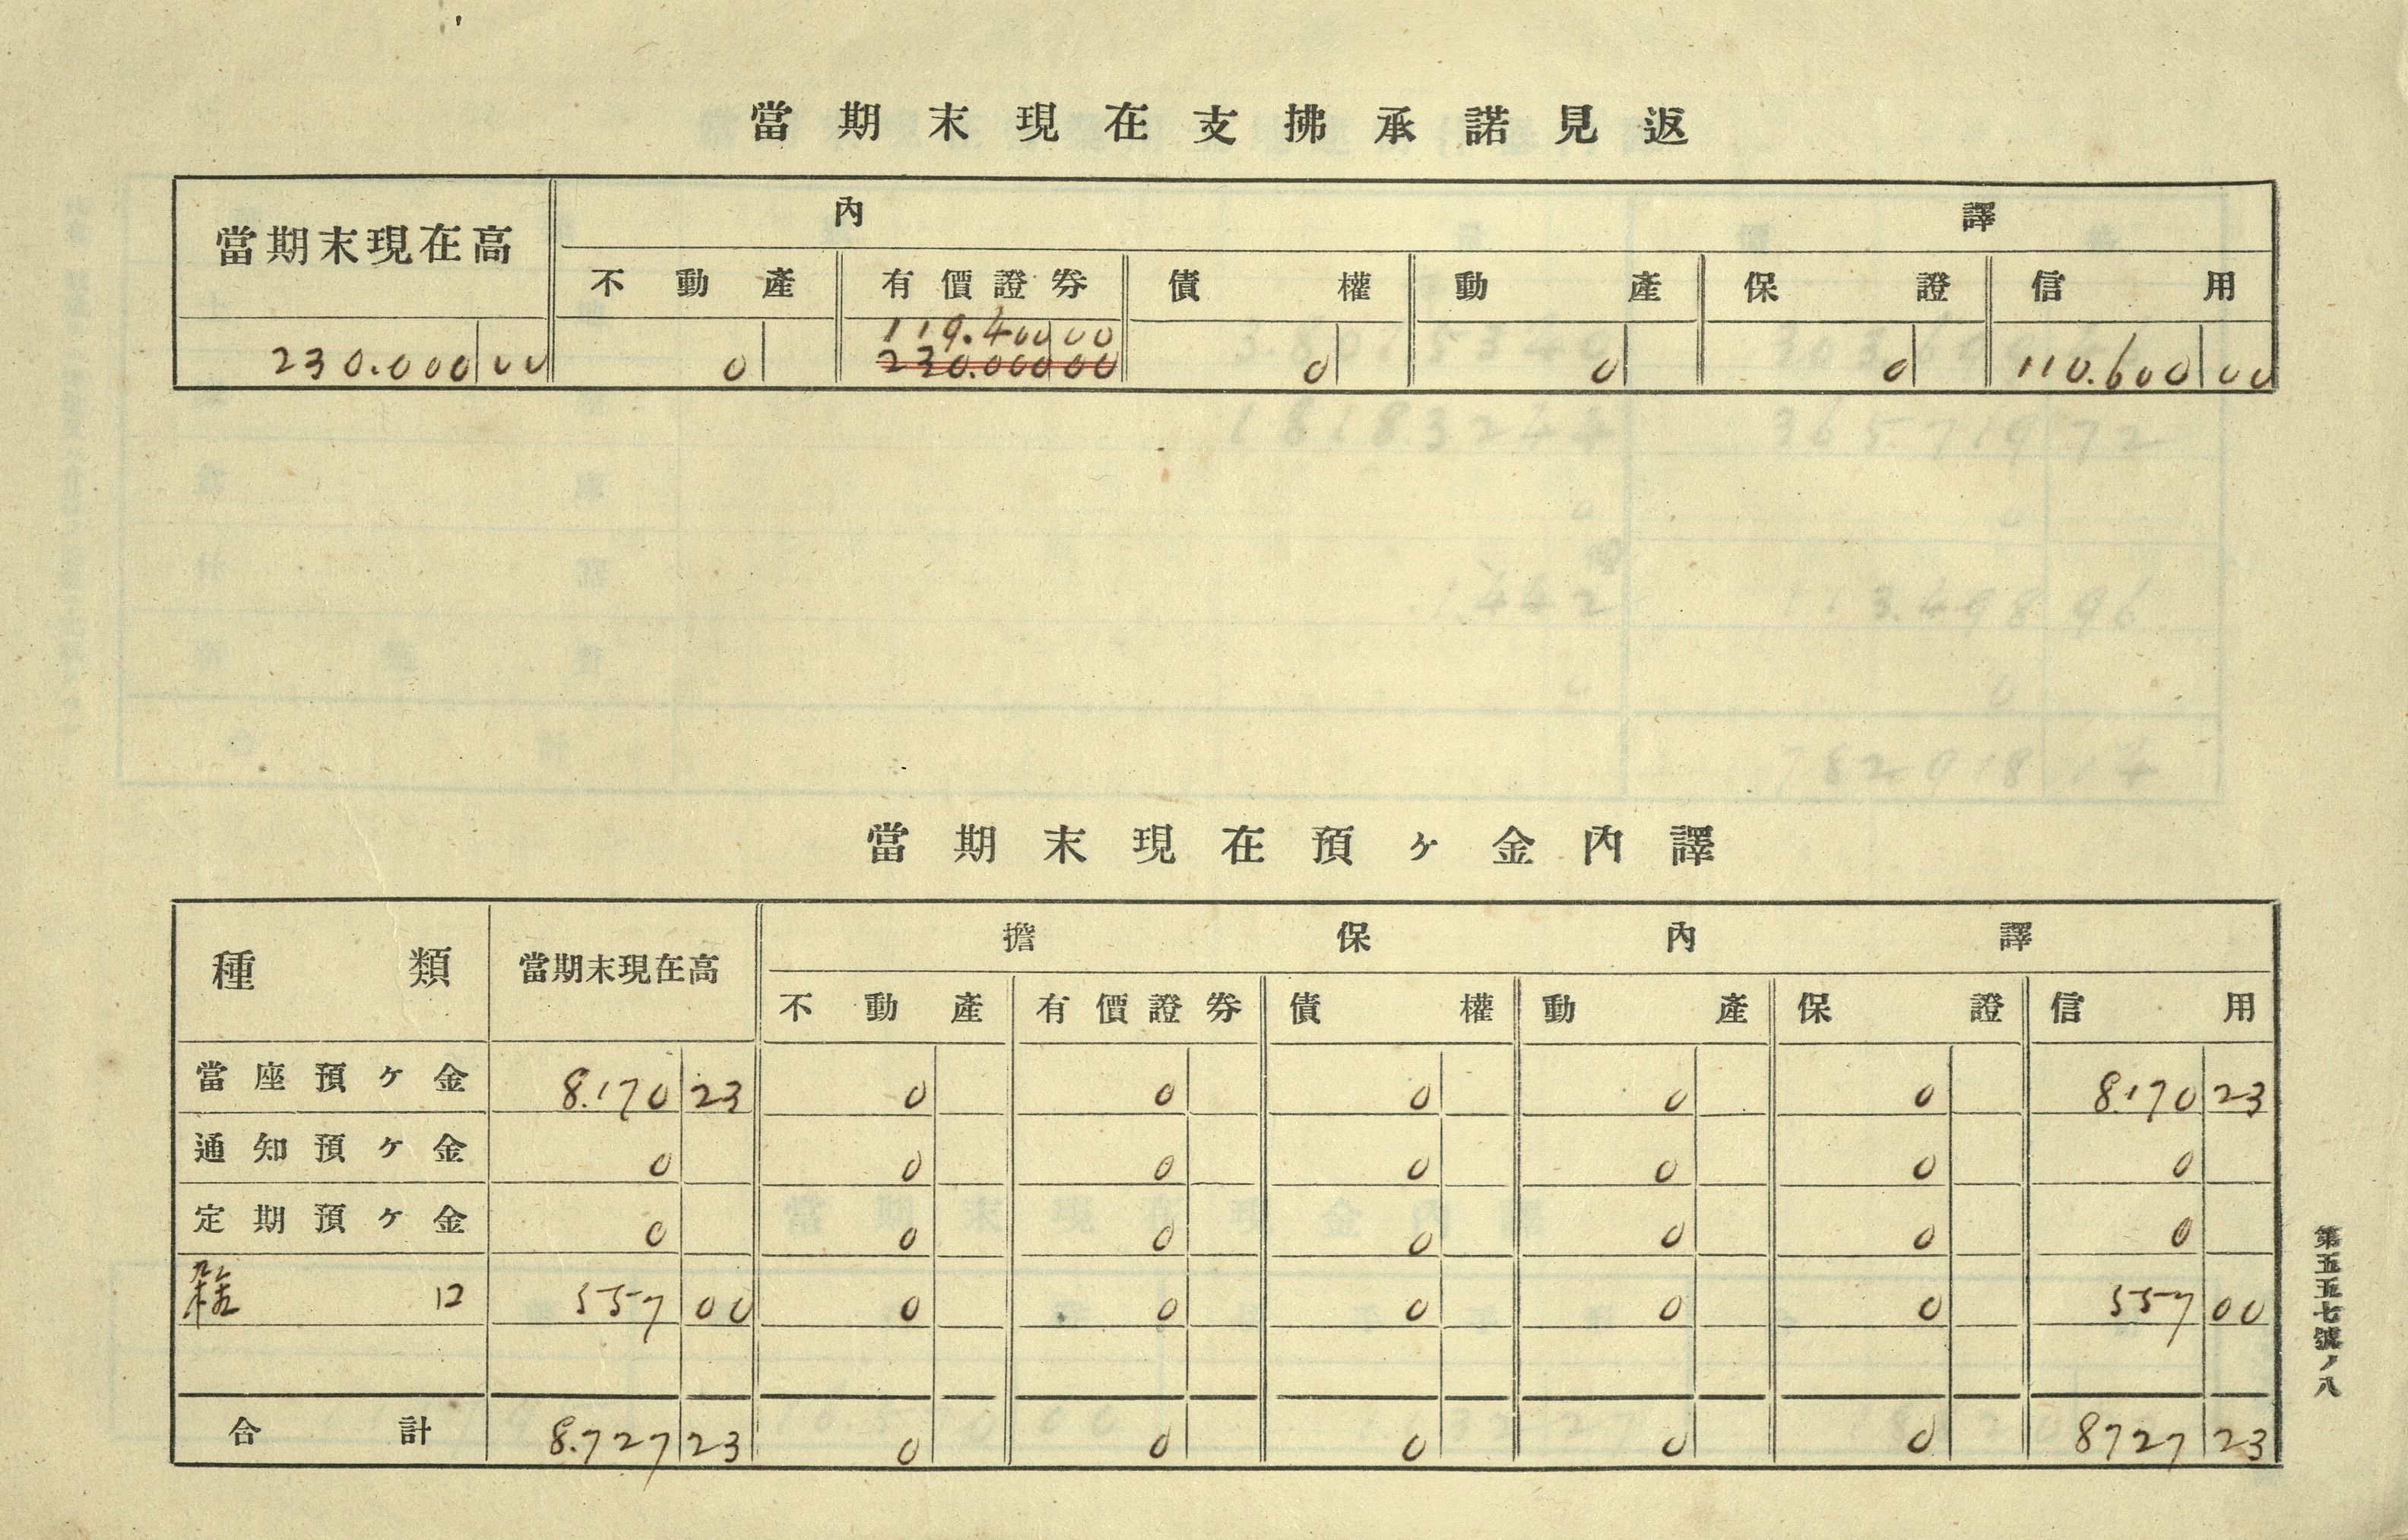 當期末現在支拂承諾見返
當期末現在高 內譯
不動產 有價證券 債權 動產 保證 信用
119.400 00
230.000 00 0 230.000 00 0 0 0 110.600 00
當期末現在預ヶ金內譯
種類 當期末現在高 擔保內譯
不動產 有價證券 債權 動產 保證 信用
當座預ヶ金 8.170 23 0 0 0 0 0 8.170 23
通知預ヶ金 0 0 0 0 0 0 0
定期預ヶ金 0 0 0 0 0 0 0
口 557 00 0 0 0 0 0 557 00
合計 8.727 23 0 0 0 0 0 8727 23
第五五七號ノ八